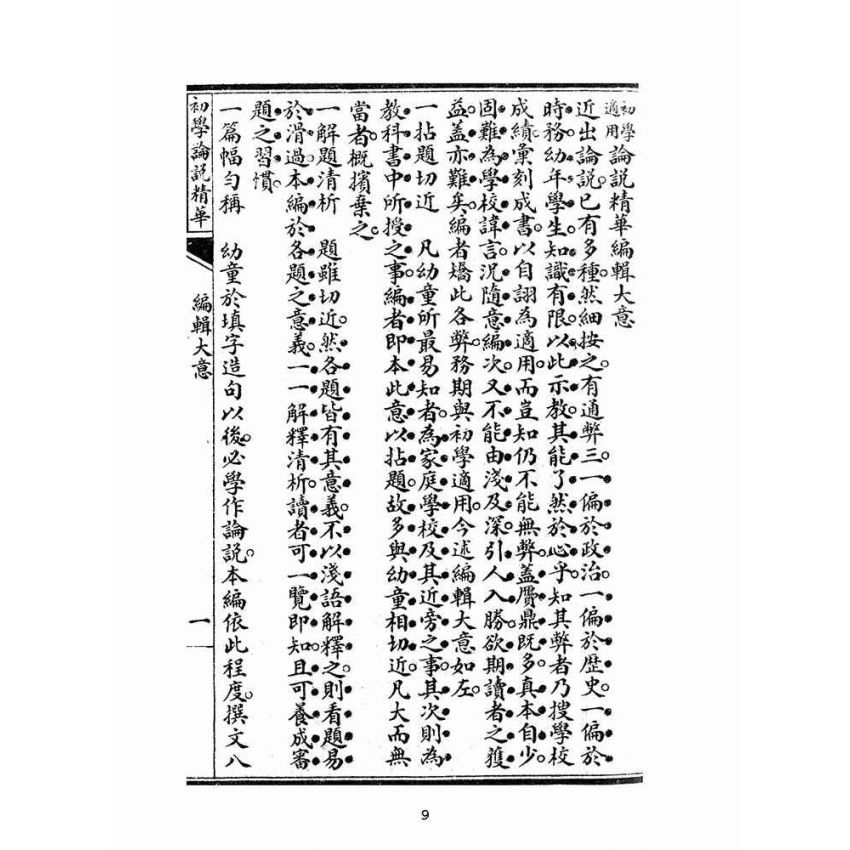 初學適用論說精華編輯大意
近出論說。已有多種。然細按之。有通弊三。一偏於政治。一偏於歷史。一偏於
時務。幼年學生。知識有限。以此示教。其能了然於心乎。知其弊者。乃搜學校
成績。彙刻成書。以自詡為適用。而豈知仍不能無弊。蓋贋鼎既多。真本自少。
固難為學校諱言。況隨意編次。又不能由淺及深。引人入勝。欲期讀者之獲
益。蓋亦難矣。編者矯此各弊。務期與初學適用。今述編輯大意如左。
一拈題切近 凡幼童所最易知者。為家庭學校及其近旁之事。其次則為
教科書中所授之事。編者即本此意以拈題。故多與幼童相切近。凡大而無
當者。概擯棄之。
一解題清析 題雖切近。然各題皆有其意義。不以淺語解釋之。則看題易
於滑過。本編於各題之意義。一一解釋清析。讀者可一覽即知。且可養成審
題之習慣。
一篇幅勻稱 幼童於填字造句以後。必學作論說。本編依此程度。撰文八
初學論說精華 編輯大意 一
9